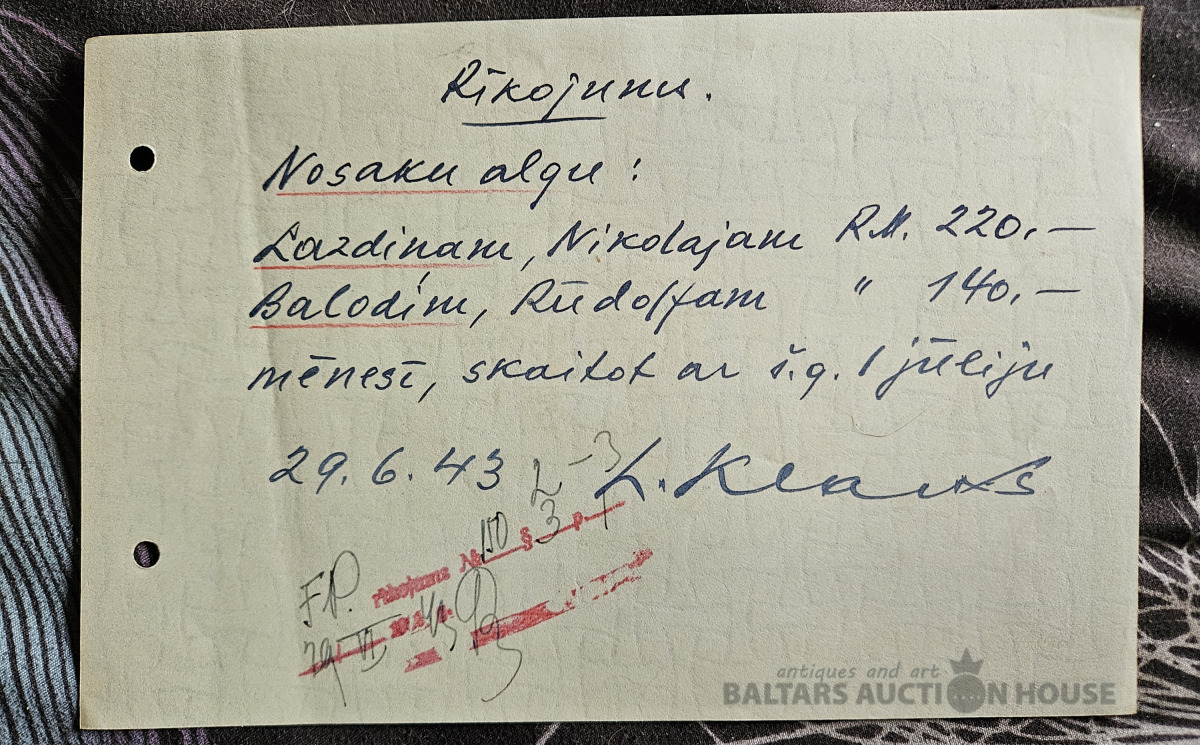 Rīkojums.
Nosaku algu:
Lazdiņam, Nikolajam RM. 220,—
Balodim, Rūdolfam " 140,—
mēnesī, skaitot ar š.g. 1 jūliju
29.6.43 L. Klauss
2-3
rīkojums № 150 § 3 p. 1
FP.
29 VI 194
antiques and art
BALTARS AUCTION HOUSE